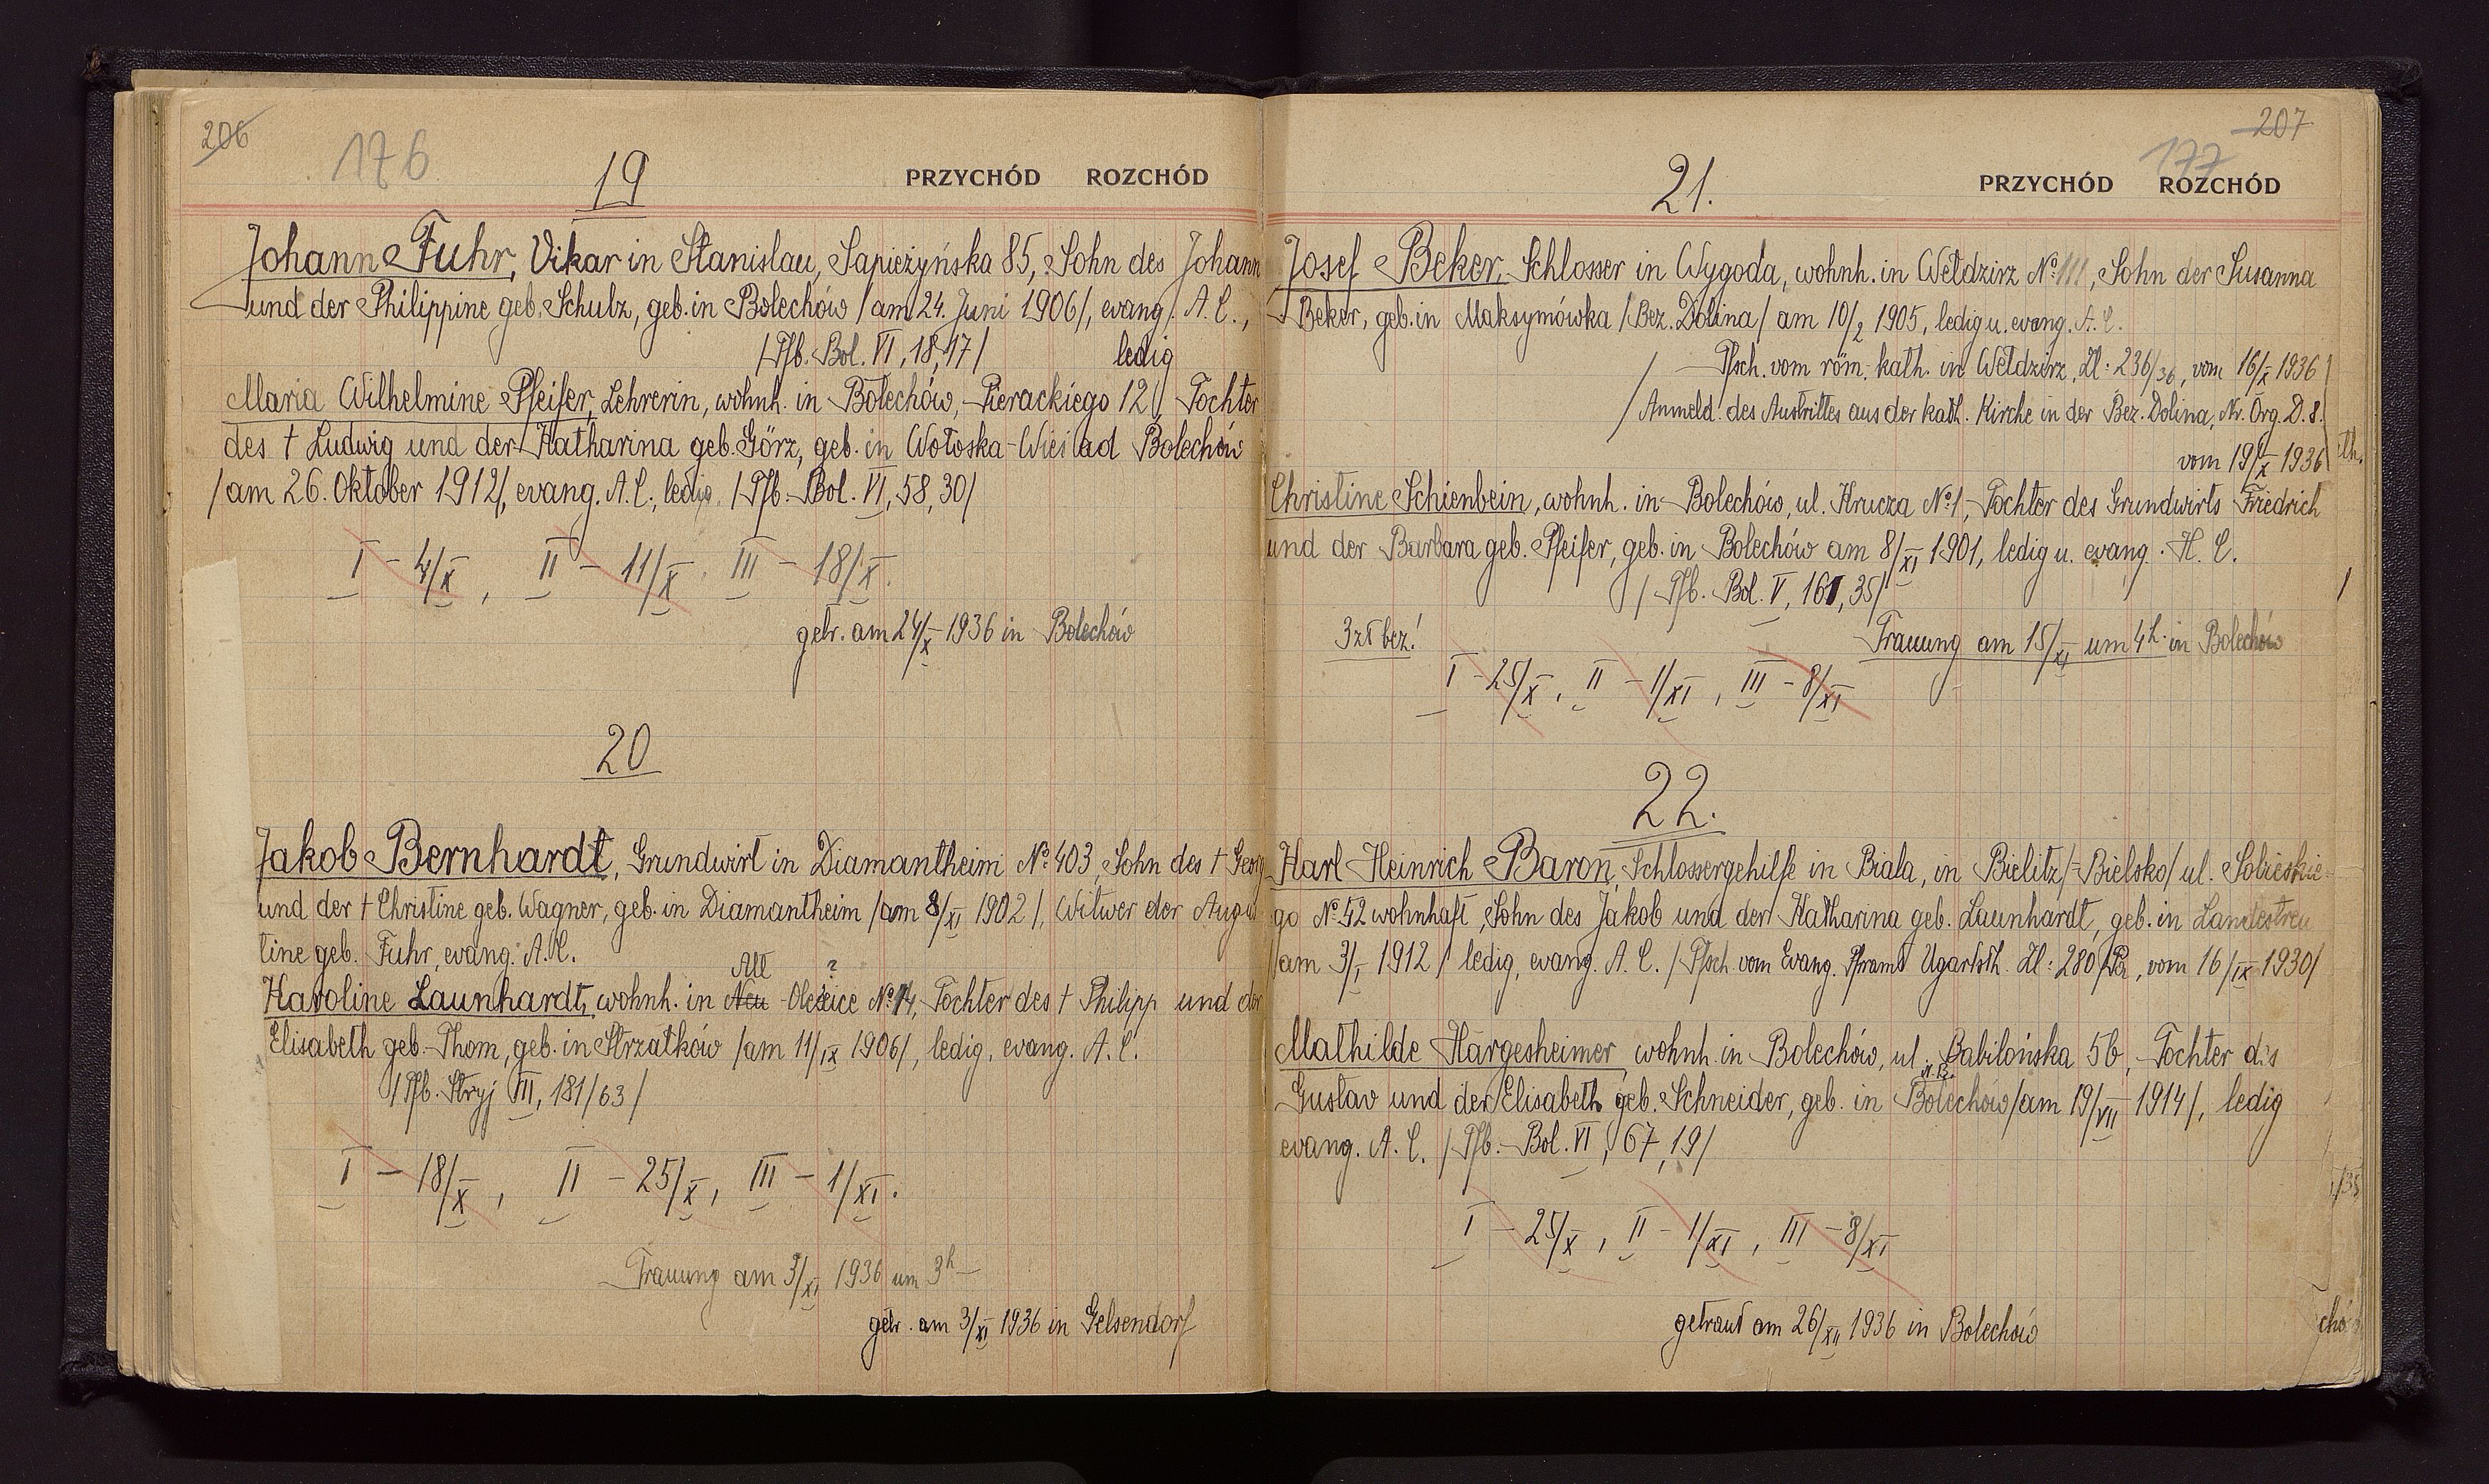 206
176
19
PRZYCHÓD ROZCHÓD
Johann Fuhr, Vikar in Stanislau, Sapieżyńska 85, Sohn des Johann
und der Philippine geb. Schulz, geb. in Bolechów /am 24. Juni 1906/, evang. A. C.,
/Pfb. Bol. VI, 18, 17/ ledig
Maria Wilhelmine Pfeifer, Lehrerin, wohnh. in Bolechów, Pierackiego 12, Tochter
des † Ludwig und der Katharina geb. Görz, geb. in Wołoska-Wieś ad Bolechów
/am 26. Oktober 1912/, evang. A. C., ledig. /Pfb. Bol. VI, 58, 30/
I – 4/X, II – 11/X, III – 18/X.
getr. am 24/X 1936 in Bolechów
20
Jakob Bernhardt, Grundwirt in Diamantheim No 403, Sohn des † Georg
und der † Christine geb. Wagner, geb. in Diamantheim /am 8/XI 1902/, Witwer der Augus
tine geb. Fuhr, evang. A. C.
Alt ?
Karoline Launhardt, wohnh. in Neu - Olexice No 14, Tochter des † Philipp und der
Elisabeth geb. Thom, geb. in Strzałków /am 11/IX 1906/, ledig, evang. A. C.
/Pfb. Stryj III, 181/63/
I – 18/X, II – 25/X, III – 1/XI.
Trauung am 3/XI 1936 um 3h –
getr. am 3/XI 1936 in Gelsendorf
207
177
21.
PRZYCHÓD ROZCHÓD
Josef Beker, Schlosser in Wygoda, wohnh. in Wełdzirz No 111, Sohn der Susanna
Beker, geb. in Maksymówka /Bez. Dolina/ am 10/2 1905, ledig u. evang. A. C.
/Pfsch. vom röm. kath. in Wełdzirz, Zl: 236/36, vom 16/X 1936/
/Anmeld. des Austrittes aus der kath. Kirche in der Bez. Dolina, Nr. Org. D. 8.
vom 19/X 1936/
th.
Christine Schienbein, wohnh. in Bolechów, ul. Krucza No 1, Tochter des Grundwirts Friedrich
und der Barbara geb. Pfeifer, geb. in Bolechów am 8/XI 1901, ledig u. evang. H. C.
/Pfb. Bol. V, 161, 35/
3 zł bez! Trauung am 15/XI um 4h. in Bolechów
I – 25/X, II – 1/XI, III – 8/XI
22.
Karl Heinrich Baron, Schlossergehilfe in Biala, in Bielitz /-Bielsko/ ul. Sobieskie-
go No 42 wohnhaft, Sohn des Jakob und der Katharina geb. Launhardt, geb. in Landestreu
/am 3/I 1912/ ledig, evang. A. C. /Pfsch. vom Evang. Pframt Ugartsth. Zl: 280/Pa, vom 16/IX 1930/
Mathilde Hargesheimer, wohnh. in Bolechów, ul. Babilońska 56, Tochter des
N. B.
Gustav und der Elisabeth geb. Schneider, geb. in Bolechów /am 19/VII 1914/, ledig
evang. A. C. /Pfb. Bol. VI, 67, 19/
I – 25/X, II – 1/XI, III – 8/XI
getraut am 26/XII 1936 in Bolechów